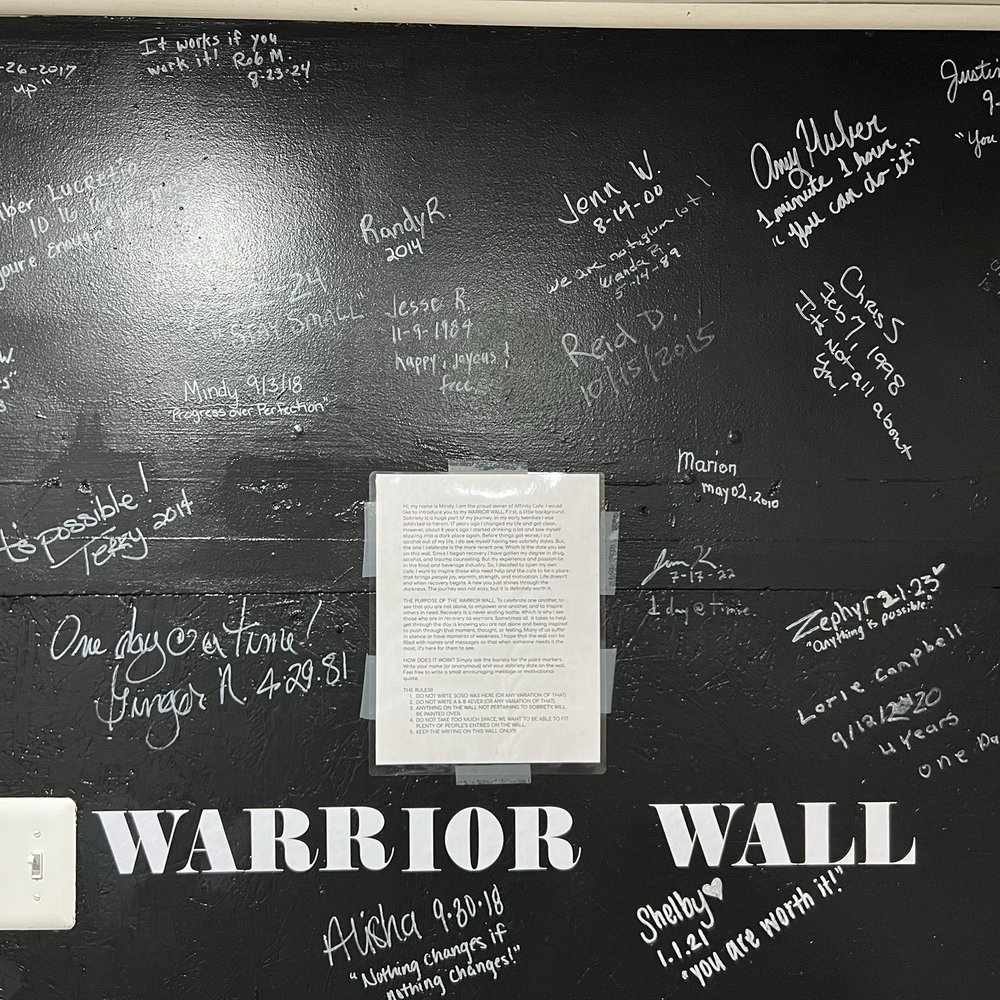 It works if you
work it! Rob M.
8-23-24
-26-2017
up"
Justi
9-
"You
Amy Huber
1 minute 1 hour
"You can do it"
Jenn W.
8-14-00
we are not a glum lot!
Wanda R.
5-14-89
Randy R.
2014
10 16
you're enough
24
"STAY SMALL"
Jesse R.
11-9-1984
happy, joyous!
free
Reid D.
10/15/2015
Chris S
Feb 7, 1998
It's not all about
ya!
W.
Mindy 9/3/18
"Progress over Perfection"
Marion
may 02, 2010
It's possible!
Terry 2014
Jim K.
7-17-22
1 day @ Time
Zephyr 2.1.23
"Anything is possible."
Lorie Campbell
9/12/2020
4 years
one Da
One day @ a time!
Ginger N. 4.29.81
Hi, my name is Mindy. I am the proud owner of Affinity Cafe. I would
like to introduce you to my WARRIOR WALL. First, a little background.
Sobriety is a huge part of my journey. In my early twenties I was
addicted to heroin. 17 years ago I changed my life and got clean.
However, about 8 years ago I started drinking a lot and saw myself
slipping into a dark place again. Before things got worse, I cut
alcohol out of my life. I do see myself having two sobriety dates. But,
the one I celebrate is the more recent one. Which is the date you saw
on this wall. Since I began recovery I have gotten my degree in drug,
alcohol, and trauma counseling. But my experience and passion is
in the food and beverage industry. So, I decided to open my own
cafe. I want to inspire those who need help and the cafe to be a place
that brings people joy, warmth, strength, and motivation. Life doesn't
end when recovery begins. A new you just shines through the
darkness. The journey was not easy, but it is definitely worth it.
THE PURPOSE OF THE WARRIOR WALL: To celebrate one another, to
see that you are not alone, to empower one another, and to inspire
others in need. Recovery is a never ending battle. Which is why I see
those who are in recovery as warriors. Sometimes all it takes to help
get through the day is knowing you are not alone and being inspired
to push through that moment, thought, or feeling. Many of us suffer
in silence or have moments of weakness. I hope that the wall can be
filled with names and messages so that when someone needs it the
most, it's here for them to see.
HOW DOES IT WORK? Simply ask the barista for the paint markers.
Write your name (or anonymous) and your sobriety date on the wall.
Feel free to write a small encouraging message or motivational
quote.
THE RULES!!!
1. DO NOT WRITE SOSO WAS HERE (OR ANY VARIATION OF THAT)
2. DO NOT WRITE A & B 4EVER (OR ANY VARIATION OF THAT)
3. ANYTHING ON THE WALL NOT PERTAINING TO SOBRIETY, WILL
BE PAINTED OVER.
4. DO NOT TAKE TOO MUCH SPACE, WE WANT TO BE ABLE TO FIT
PLENTY OF PEOPLE'S ENTRIES ON THE WALL.
5. KEEP THE WRITING ON THIS WALL ONLY!!!
WARRIOR WALL
Alisha 9.30.18
"Nothing changes if
nothing changes!"
Shelby
1.1.21
"you are worth it!"